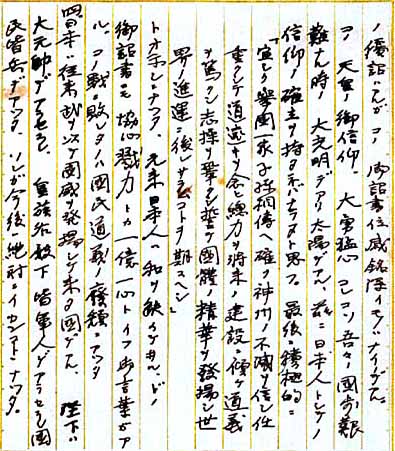 ノ優詔ガコノ御詔書位感銘深イモノハナイデアル。
コノ天皇ノ御信仰、大勇猛心コレコソ吾々ノ國家艱
難ノ時ノ大光明デアリ太陽デアル。茲ニ日本人トシテノ
信仰ノ確立ヲ持タネバナラヌト思フ。最後ニ積極的ニ
「宜シク擧國一家子孫相傳ヘ確ク神州ノ不滅ヲ信シ任
重クシテ道遠キヲ念ヒ總力ヲ將来ノ建設ニ傾ケ道義
ヲ篤クシ志操ヲ鞏クシ誓テ國體ノ精華ヲ發揚シ世
界ノ進運ニ後レサラムコトヲ期スヘシ」
トナツタ。元来日本人ハ和ヲ缺クドノ
御詔書モ協心戮力トカ一億一心トイフ御言葉ガア
ル。コノ戦ノ敗レタノハ國民道義ノ廢頽ニアツタ
國威ヲ發揚シテ来タ國デアル。陛下ハ
大元帥デアラセラレ、皇族各殿下皆軍人デアラセラレ國
民皆兵デアツタ。ソレガ今後絶対ニナツタ。